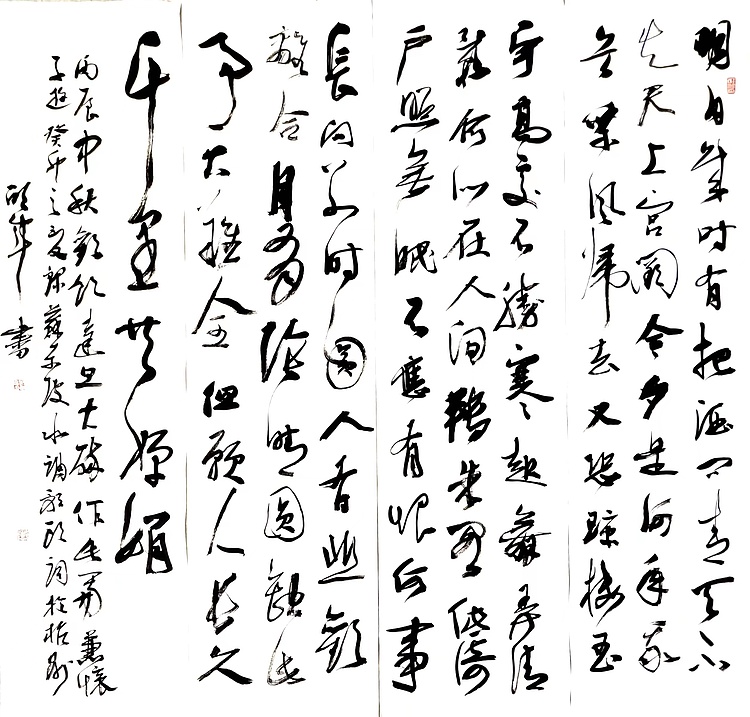 明月幾时有把酒问青天不
知天上宫阙今夕是何年我
欲乘风歸去又恐琼楼玉
宇高处不勝寒起舞弄清
影何似在人间轉朱阁低绮
户照無眠不應有恨何事
長向别时圆人有悲歡
離合月有陰晴圆缺此
事古難全但願人长久
千里共婵娟
丙辰中秋歡饮達旦大醉作此篇兼懷
子由癸卯之夏録蘇东坡水调歌头词於
書